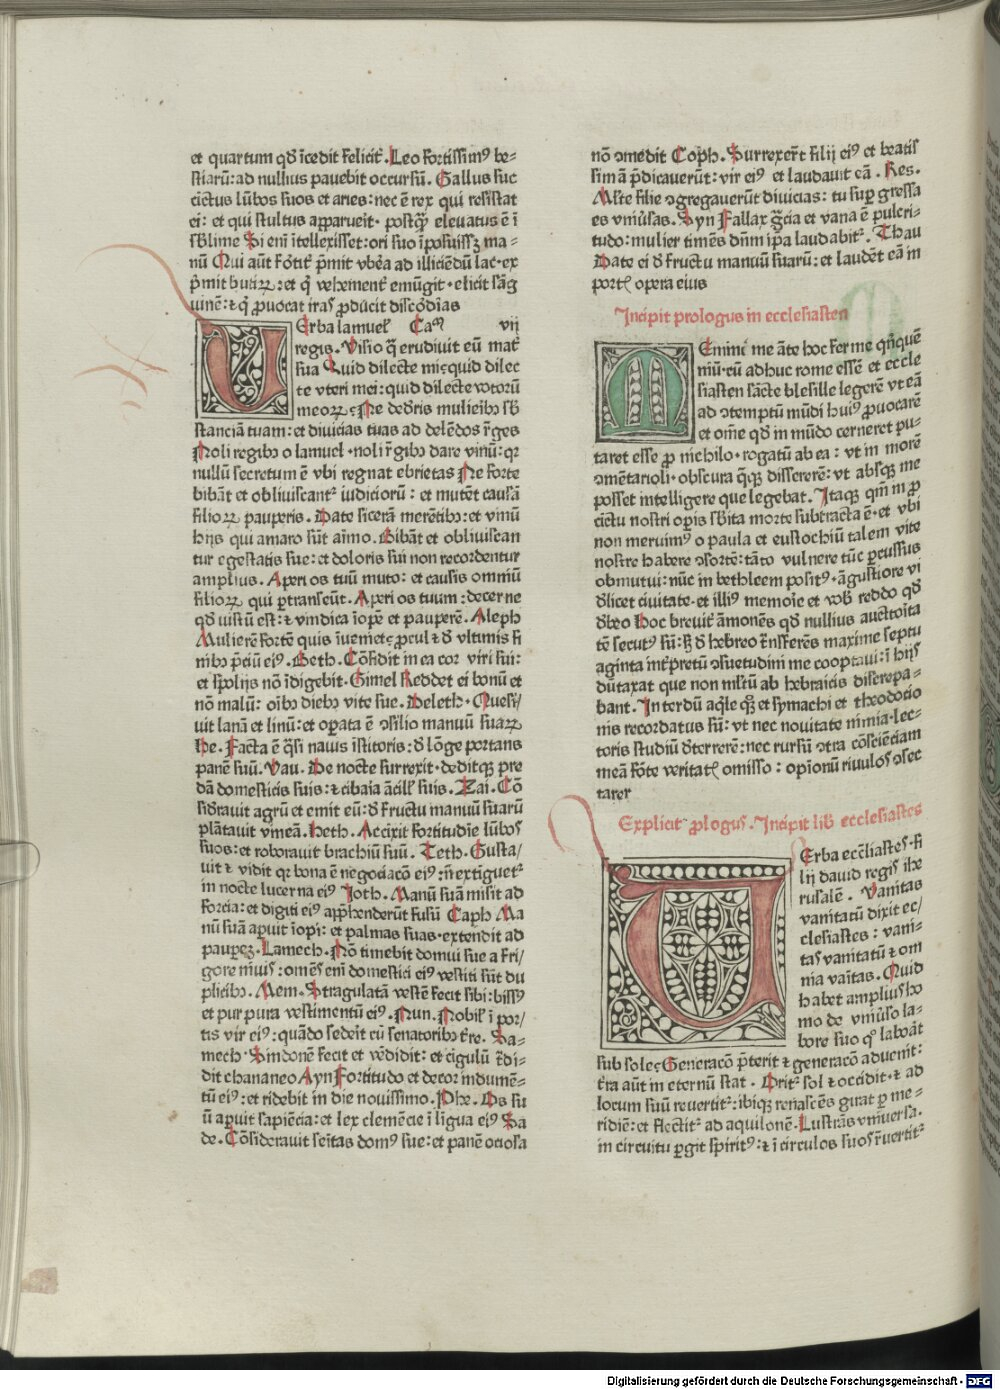 et quartum qd̄ īcedit felicit͛. Leo fortissimꝰ be-
stiarū: ad nullius pauebit occursū. Gallus suc
cictus lūbos suos et aries: nec ē rex qui resistat
ei: et qui stultus apparueit· postq̄ꝫ eleuatus ē ī
sb̄lime Si eni̅ ītellexisset: ori suo īposuissꝫ ma-
nū Qui aūt fo̅tit͛ p̄mit vbera ad illiciēdū lac· ex
p̄mit butiꝝ: et q̄ vehement͛ emūgit· elicit sāg
uinē: ⁊ q̄ ꝓuocat iras ꝓducit discōdias
Erba lamuel Cam vij
regis. Visio q̄ erudiuit eū mat͛
sua Quid dilecte mi: quid dilec
te vteri mei: quid dilecte votorū
meoꝝ: Ne dedr̄is mulieribꝫ sb̄
stanciā tuam: et diuicias tuas ad delēdos r̄ges
Noli regibꝫ o lamuel· noli r̄gibꝫ dare vinū: qꝛ
nullū secretum ē vbi regnat ebrietas Ne forte
bibāt et obliuiscant͛ iudiciorū: et mutēt causā
filioꝝ pauperis. Date sicerā merētibꝫ: et vinū
hijs qui amaro sūt aīmo. Bibāt et obliuiscan
tur egestatis sue: et doloris sui non recordentur
amplius. Aperi os tuū muto: et causis omniū
filioꝝ qui ꝑtranseūt. Aperi os tuum: decerne
qd̄ iustū est: ⁊ vindica īopē et pauperē. Aleph
Mulierē fortē quis īueniet: ꝓcul ⁊ d̄ vltimis fi
nibꝫ p̄ciū eiꝰ. Beth. Cōfidit in ea cor viri sui:
et spolijs nō īdigebit· Gimel Reddet ei bonū et
nō malū: oībꝫ diebꝫ vite sue. Deleth· Quesi/
uit lanā et linū: et oꝑata ē ꝯsilio manuū suaꝝ
He. Facta ē q̄si nauis īstitoris: d̄ lōge portans
panē suū. Vau. De nocte surrexit· deditqꝫ pre
dā domesticis suis: ⁊ cibaia ācill̄ suis. Zai. Cō
sid̄rauit agrū et emit eū: d̄ fructu manuū suarū
plātauit vineā. Heth. Accixit fortitudīe lūbos
suos: et roborauit brachiū suū. Teth. Gusta/
uit ⁊ vidit qꝛ bona ē negociacō eiꝰ: n̄ extiguet͛
in nocte lucerna eiꝰ Joth. Manū suā misit ad
forcia: et digiti eiꝰ app̄henderūt fusū Caph Ma
nū suā aꝑuit īopi: et palmas suas· extendit ad
pauꝑeꝫ· Lamech. Nō timebit domui sue a fri/
gore niuis: om̄es eni̅ domestici eiꝰ vestiti sūt du
plicibꝫ. Mem. Stragulatā vestē fecit sibi: bissꝰ
et purpura vestimentū eiꝰ. Nun. Nobil̄ ī por/
tis vir eiꝰ: quādo sedeīt cū senatoribꝫ t̄re. Sa-
mech· Sindonē fecit et vēdidit: et cīgulū t͛di-
dit chananeo Ayn Fortitudo et decor indumē-
tū eiꝰ: et ridebit in die nouissimo. Phe. Os su
ū aꝑuit sapiēcia: et lex clemēcie ī līgua eiꝰ Sa
de. Cōsiderauit seītas domꝰ sue: et panē ociosa
nō ꝯmedit Coph. Surrexer̄t filij eiꝰ et beatis
simā p̄dicauerūt: vir eiꝰ et laudauit eā. Res.
Mlte filie ꝯgregauerūt diuicias: tu suꝑgressa
es vniūsas. Syn Fallax gr̄cia et vana ē pulcri-
tudo: mulier timēs dn̄m ip̄a laudabit͛. Thau
Date ei d̄ fructu manuū suarū: et laudēt eā in
portꝭ opera eius
Incipit prologus in ecclesiasten
Emini me āte hoc ferme qn̄quē
niū· cū adhuc rome essē et eccle
siasten sācte blesille legerē· vt eā
ad ꝯtemptū mūdi huiꝰ ꝓuocarē
et om̄e qd̄ in mūdo cerneret pu-
taret esse ꝓ nichilo· rogatū ab ea: vt in morē
ꝯmētarioli· obscura q̄qꝫ disserere: vt absqꝫ me
posset intelligere que legebat. Itaqꝫ qm̄ in ꝓ
cictu nostri oꝑis sb̄ita morte subtracta ē· et vbi
non meruimꝰ o paula et eustochiū talem vite
nostre habere ꝯsortē: tāto vulnere tūc ꝑcussus
obmutui: nūc in bethleem positꝰ· āgustiore vi
d̄licet ciuitate· et illiꝰ memoīe et vob̄ reddo qd̄
d̄beo Hoc breuit͛ āmonēs qd̄ nullius auctoīta
tē secutꝰ sū: sꝫ d̄ hebreo t͛nsferēs maxime septu
aginta int͛pretū ꝯsuetudini me cooptaui: ī hijs
dūtaxat que non mltū ab hebraicis discrepa-
bant. Interdū aq̄le qꝫ et symachi et theodocio
nis recordatus sū: vt nec nouitate nimia· lec-
toris studiū d̄terrerē: nec rursū ꝯtra cōsciēciam
meā fōte veritatꝭ omisso: opīonū riuulos ꝯsec
tarer
Explicit ꝓlogus. Incipit lib̄ ecclesiastes
Erba eccl̄iastes· fi
lij dauid regis ihe
rusalē. Vanitas
vanitatū dixit ec/
clesiastes: vani-
tas vanitatū ⁊ om
nia vaītas. Quid
habet amplius ho
mo de vniūso la-
bore suo qͦ laboāt
sub sole: Generacō p̄terit ⁊ generacō aduenit:
t̄ra aūt in eternū stat. Orit͛ sol ⁊ occidit· ⁊ ad
locum suū reuertit͛: ibiqꝫ renascēs girat ꝑ me-
ridiē: et flectit͛ ad aquilonē. Lustrās vniuersa.
in circuitu ꝑgit spiritꝰ: ⁊ ī circulos suos r̄uertit͛
Digitalisierung gefördert durch die Deutsche Forschungsgemeinschaft - DFG